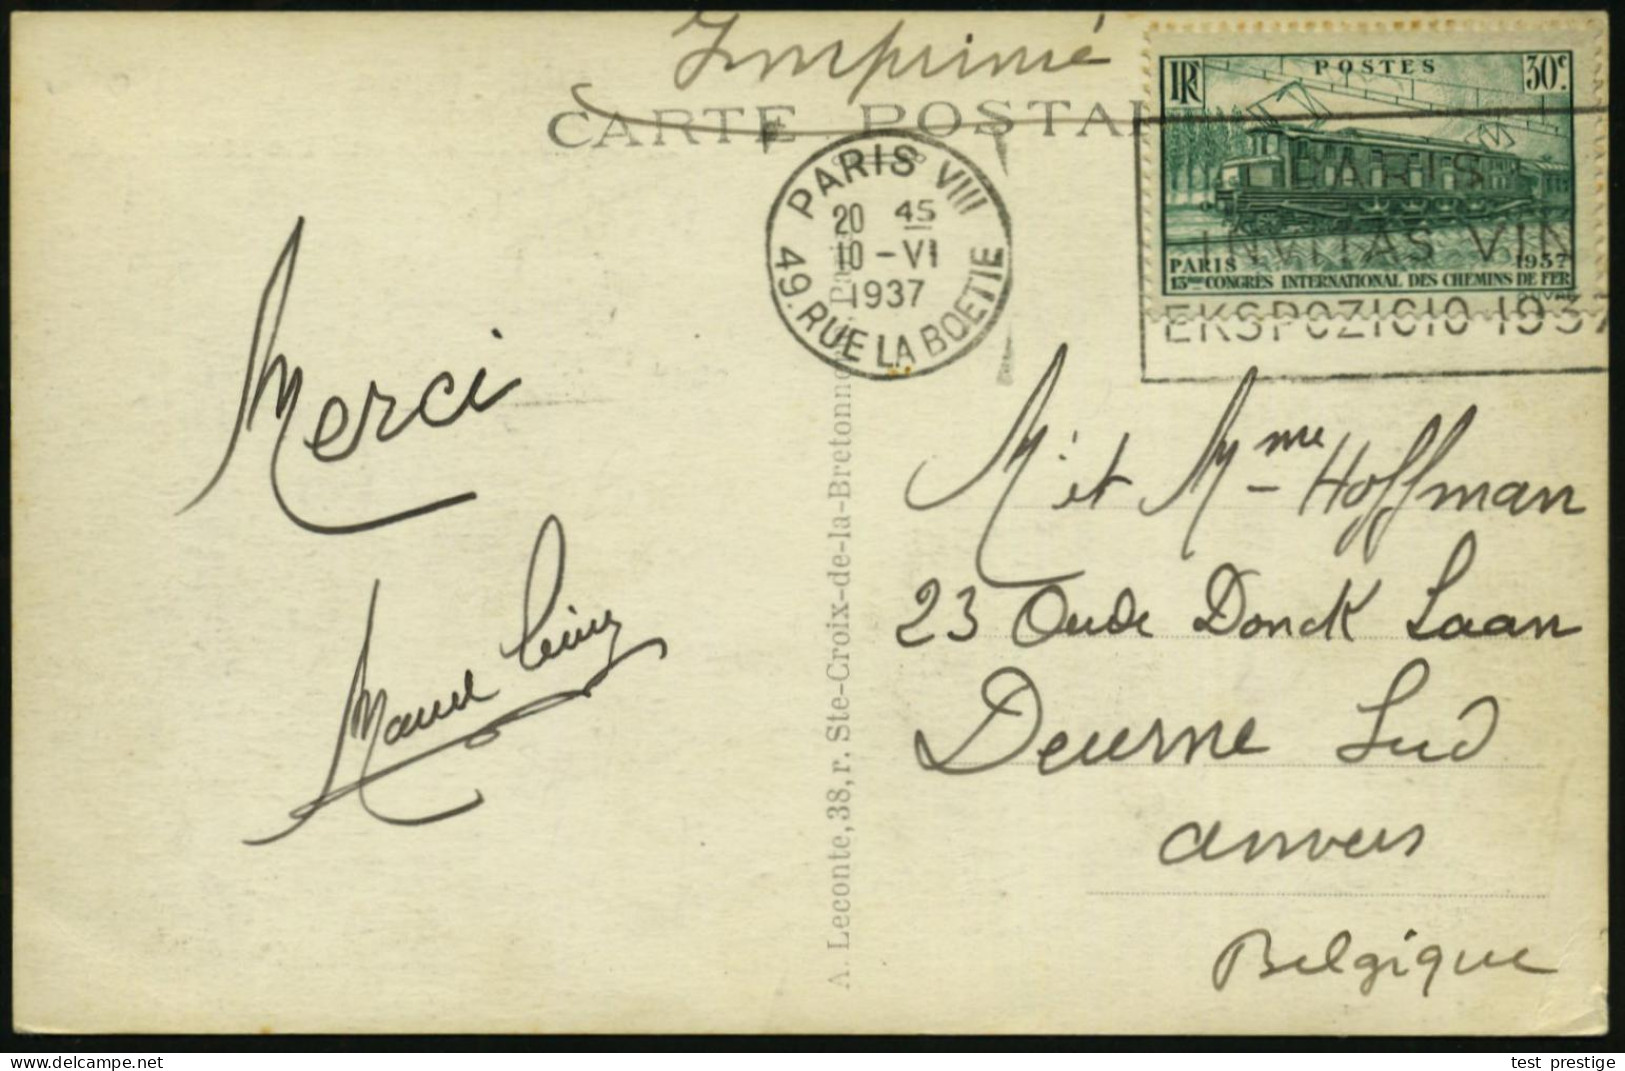 Imprimé
CARTE POSTA
RF POSTES 30c.
PARIS 1937
13me CONGRÈS INTERNATIONAL DES CHEMINS DE FER
PARIS VIII
20 45
10 - VI
1937
49. RUE LA BOETIE
PARIS
INVITAS VIN
EKSPOZICIO 1937
Merci
Marcel
A. Leconte, 38, r. Ste-Croix-de-la-Bretonne
Mr et Mme Hoffman
23 Oude Donck Laan
Deurne Sud
Anvers
Belgique
test_prestige
delcampe.net